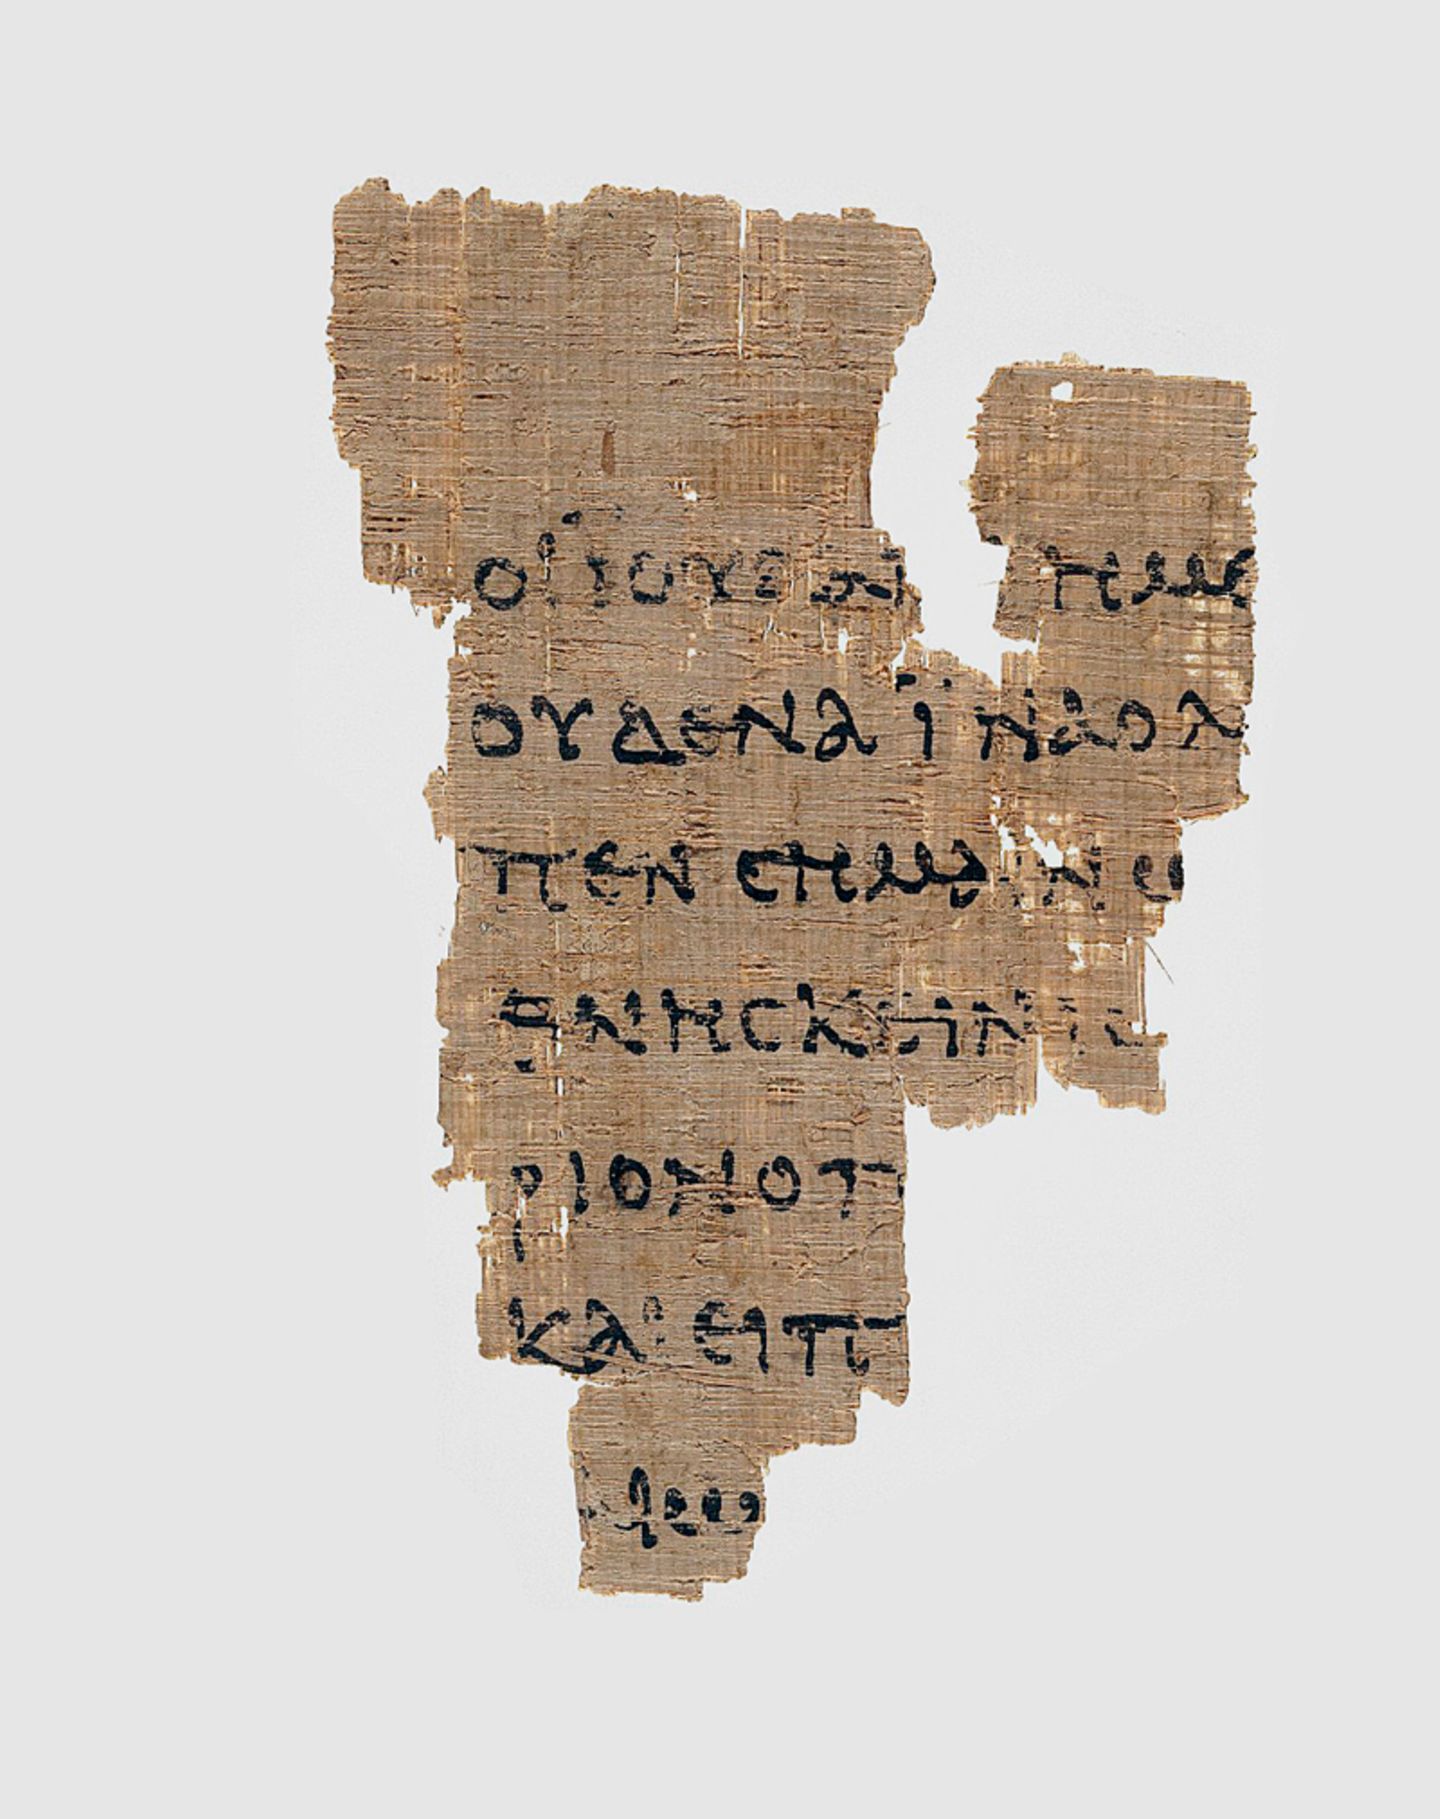 ΟΙ ΙΟΥΔΑΙ ΗΜΕ
ΟΥΔΕΝΑ ΪΝΑ Ο Λ
ΠΕΝ ΣΗΜΑΙΝΩ
ΘΝΗΣΚΕΙΝ ΙΣ
ΡΙΟΝ Ο Π
ΚΑΙ ΕΙΠ
ΑΙΩ